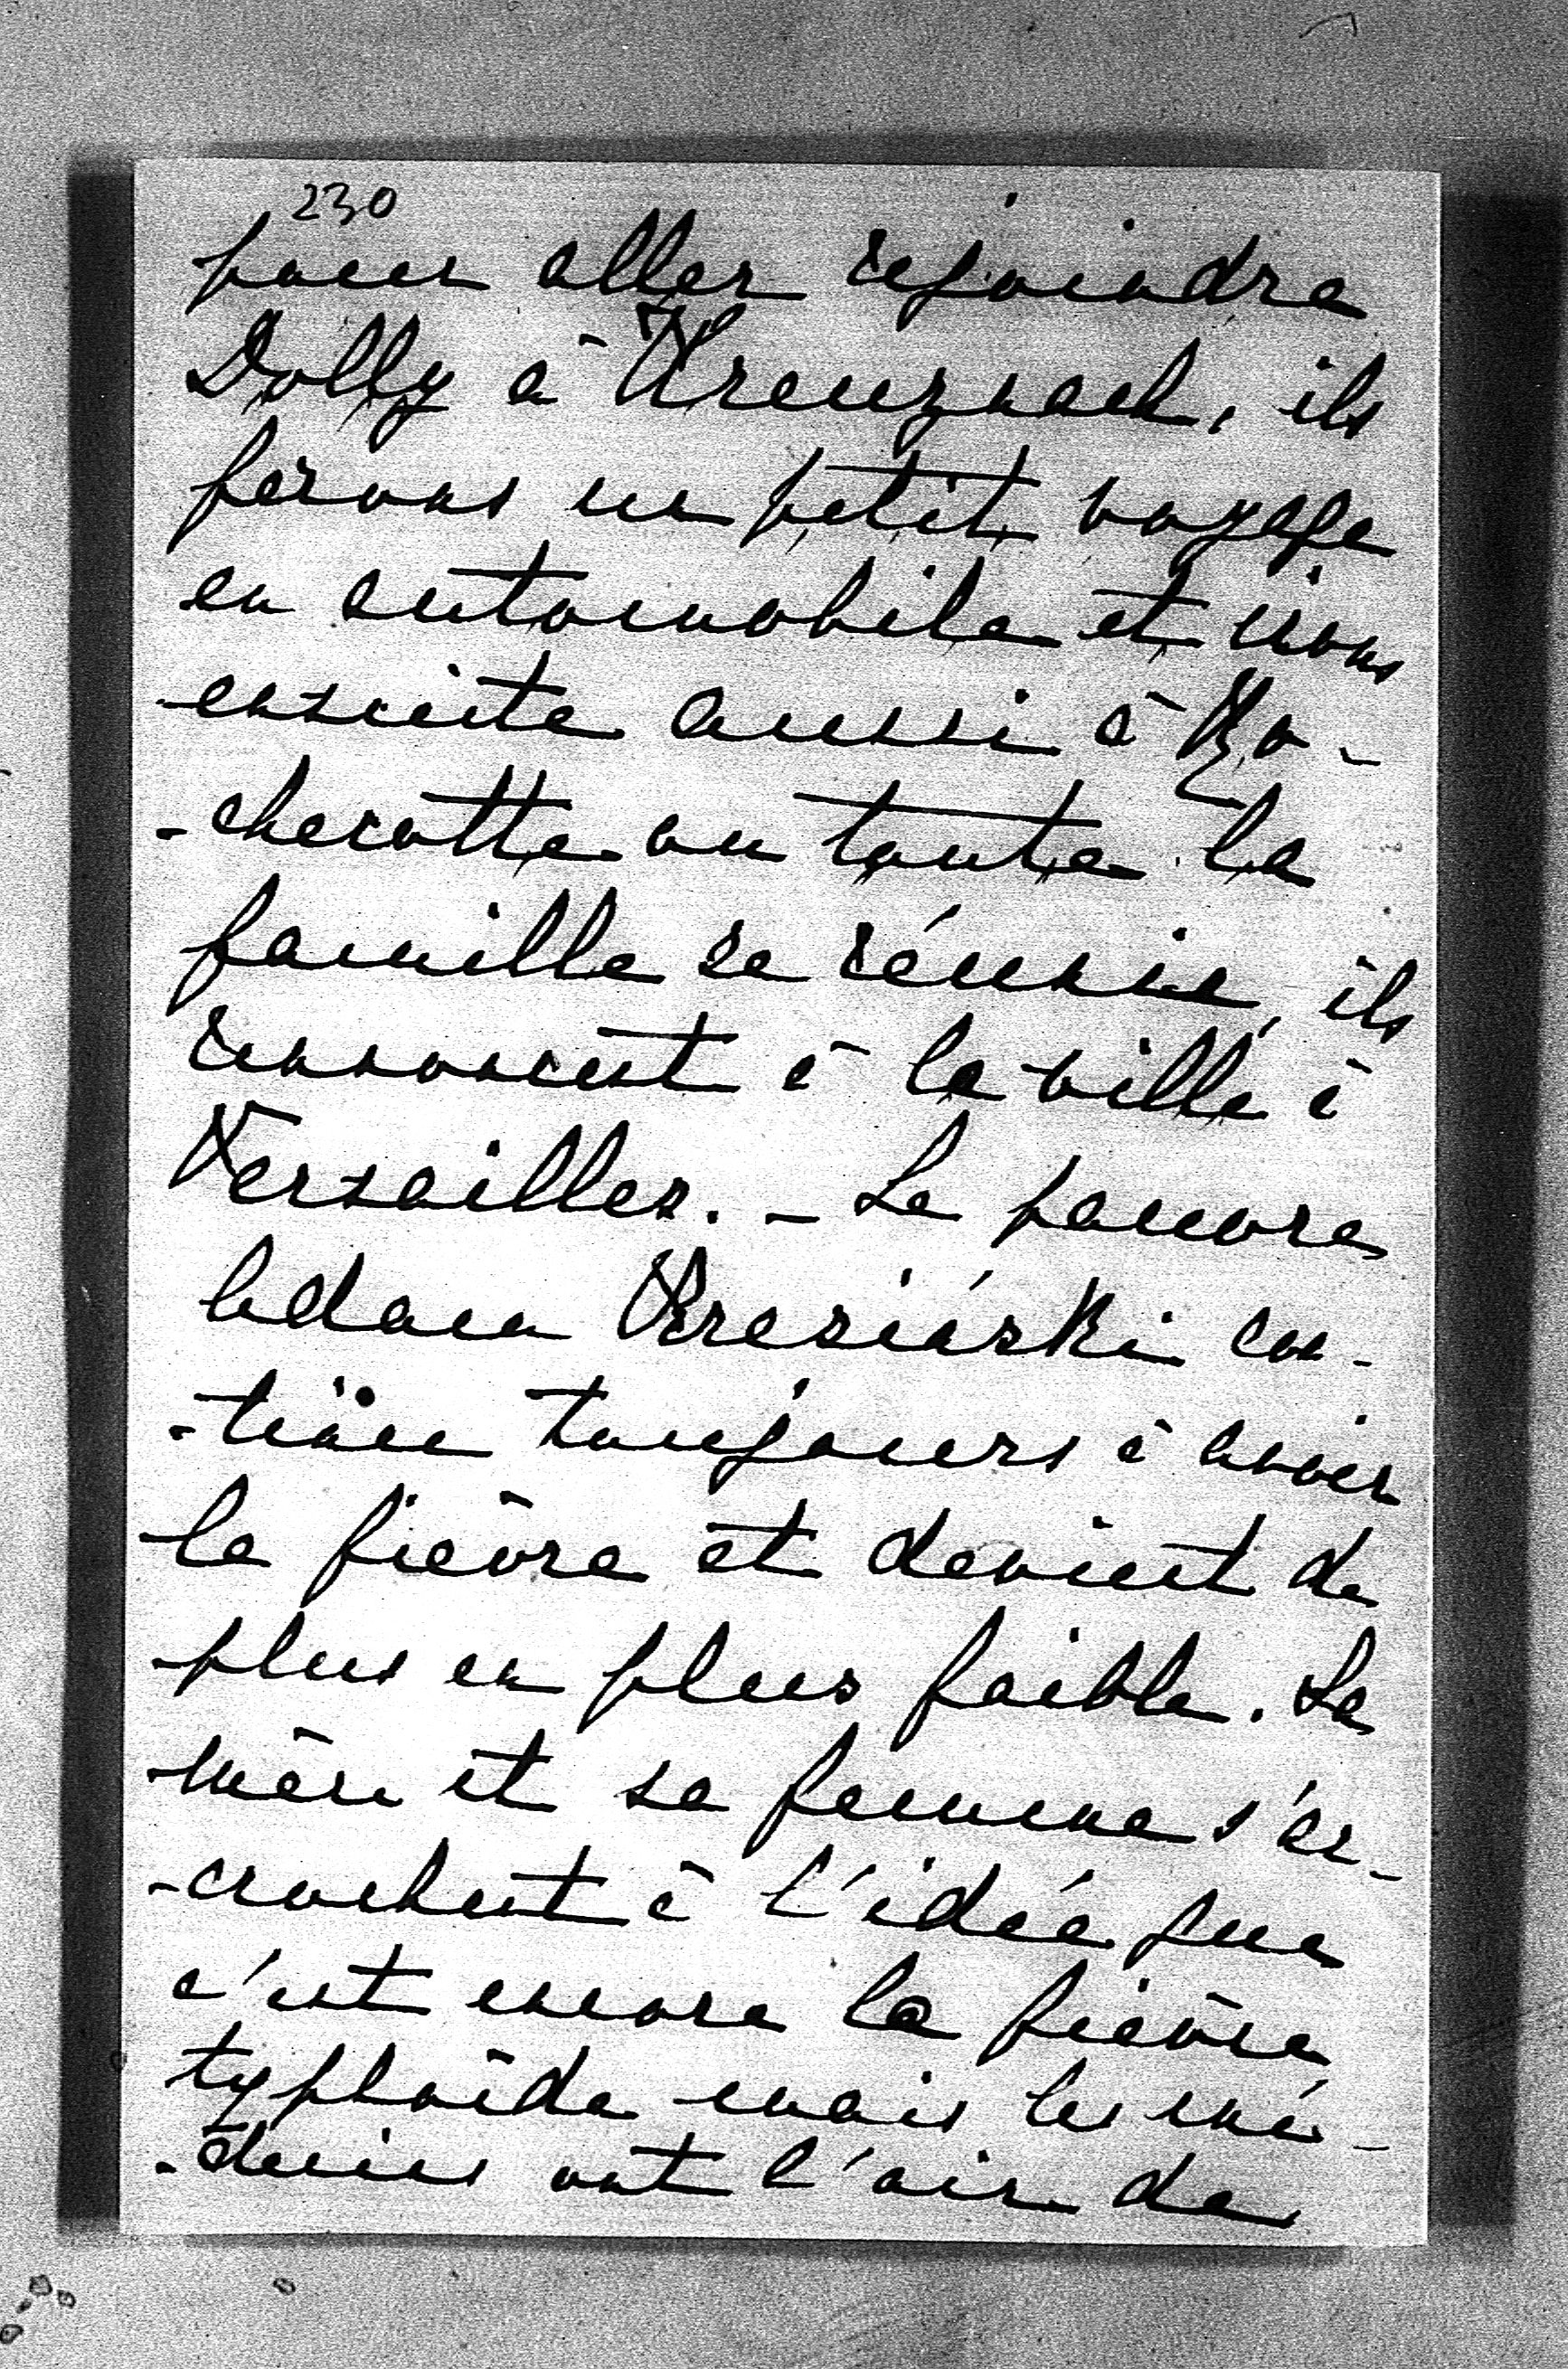 230
pour aller rejoindre
Dolly à Kreuznach, ils
ferons un petit voyage
en automobile et irons
ensuite aussi à Ro-
-checotte ou toute la
famille se réunie, ils
renoncent à la ville à
Versailles. - Le pauvre
Adam Krasiński con-
-tinue toujours à avoir
la fièvre et devient de
plus en plus faible. Sa
mère et sa femme s'ac-
-crochent à l'idée que
c'est encore la fièvre
typhoïde mais les mé-
-decins ont l'air de